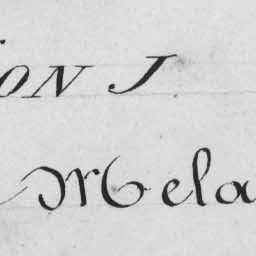 ON J
Mela